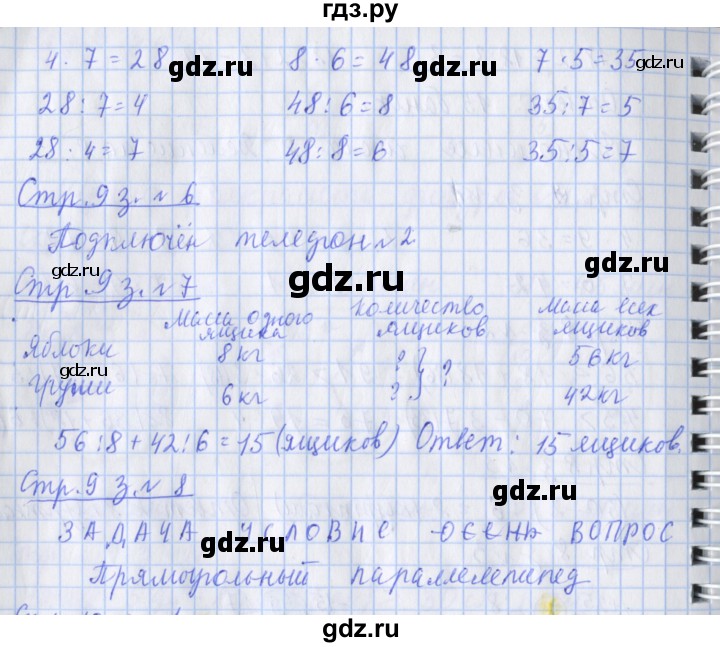 гдз.ру
4 · 7 = 28 8 · 6 = 48 7 · 5 = 35
gdz.ru gdz.ru gdz.ru
28 : 7 = 4 48 : 6 = 8 35 : 7 = 5
28 : 4 = 7 48 : 8 = 6 35 : 5 = 7
Стр. 9 з. № 6
gdz.ru
Подключён телефон №2
gdz.ru gdz.ru gdz.ru
Стр. 9 з. № 7
Масса одного ящика Количество ящиков Масса всех ящиков
Яблоки 8 кг ? } ? 56 кг
Груши 6 кг ? 42 кг
gdz.ru gdz.ru
56 : 8 + 42 : 6 = 15 (ящиков) Ответ: 15 ящиков.
Стр. 9 з. № 8
gdz.ru
ЗАДАЧА УСЛОВИЕ ОСЕНЬ ВОПРОС
gdz.ru
Прямоугольный параллелепипед
gdz.ru
gdz.ru